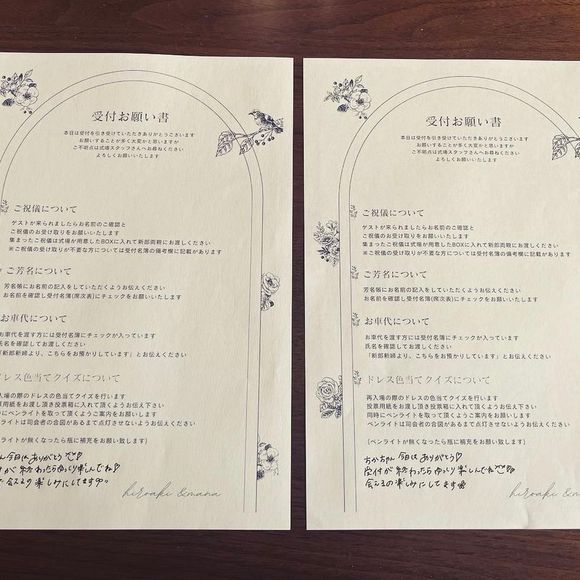 受付お願い書
本日は受付を引き受けていただきありがとうございます
お願いすることが多く大変かと思いますが
ご不明点は式場スタッフさんへお尋ねください
よろしくお願いいたします
ご祝儀について
ゲストが来られましたらお名前のご確認と
ご祝儀のお受け取りをお願いいたします
集まったご祝儀は式場が用意したBOXに入れて新郎両親にお渡しください
※ご祝儀の受け取りが不要な方については受付名簿の備考欄に記載があります
ご芳名について
芳名帳にお名前の記入をしていただくようお伝えください
お名前を確認し受付名簿(席次表)にチェックをお願いいたします
お車代について
お車代を渡す方には受付名簿にチェックが入っています
氏名を確認してお渡しください
「新郎新婦より、こちらをお預かりしています」とお伝えください
ドレス色当てクイズについて
再入場の際のドレスの色当てクイズを行います
票用紙をお渡し頂き投票箱に入れて頂くようお伝え下さい
にペンライトを取って頂くようご案内をお願いします
ンライトは司会者の合図があるまで点灯させないようお伝えください
ペンライトが無くなったら瓶に補充をお願い致します)
今日は ありがとう♡
が 終わったらゆっくり楽しんでね♡
会えるの楽しみにしてます
hiroaki &mana
受付お願い書
本日は受付を引き受けていただきありがとうございます
お願いすることが多く大変かと思いますが
ご不明点は式場スタッフさんへお尋ねください
よろしくお願いいたします
ご祝儀について
ゲストが来られましたらお名前のご確認と
ご祝儀のお受け取りをお願いいたします
集まったご祝儀は式場が用意したBOXに入れて新郎両親にお渡しください
※ご祝儀の受け取りが不要な方については受付名簿の備考欄に記載があります
ご芳名について
芳名帳にお名前の記入をしていただくようお伝えください
お名前を確認し受付名簿(席次表)にチェックをお願いいたします
お車代について
お車代を渡す方には受付名簿にチェックが入っています
氏名を確認してお渡しください
「新郎新婦より、こちらをお預かりしています」とお伝えください
ドレス色当てクイズについて
再入場の際のドレスの色当てクイズを行います
投票用紙をお渡し頂き投票箱に入れて頂くようお伝え下さい
同時にペンライトを取って頂くようご案内をお願いします
ペンライトは司会者の合図があるまで点灯させないようお伝えください
(ペンライトが無くなったら瓶に補充をお願い致します)
ちかちゃん 今日は ありがとう♡
受付が 終わったら ゆっくり 楽しんでね♡
会えるの楽しみにしてます
hiroaki &man